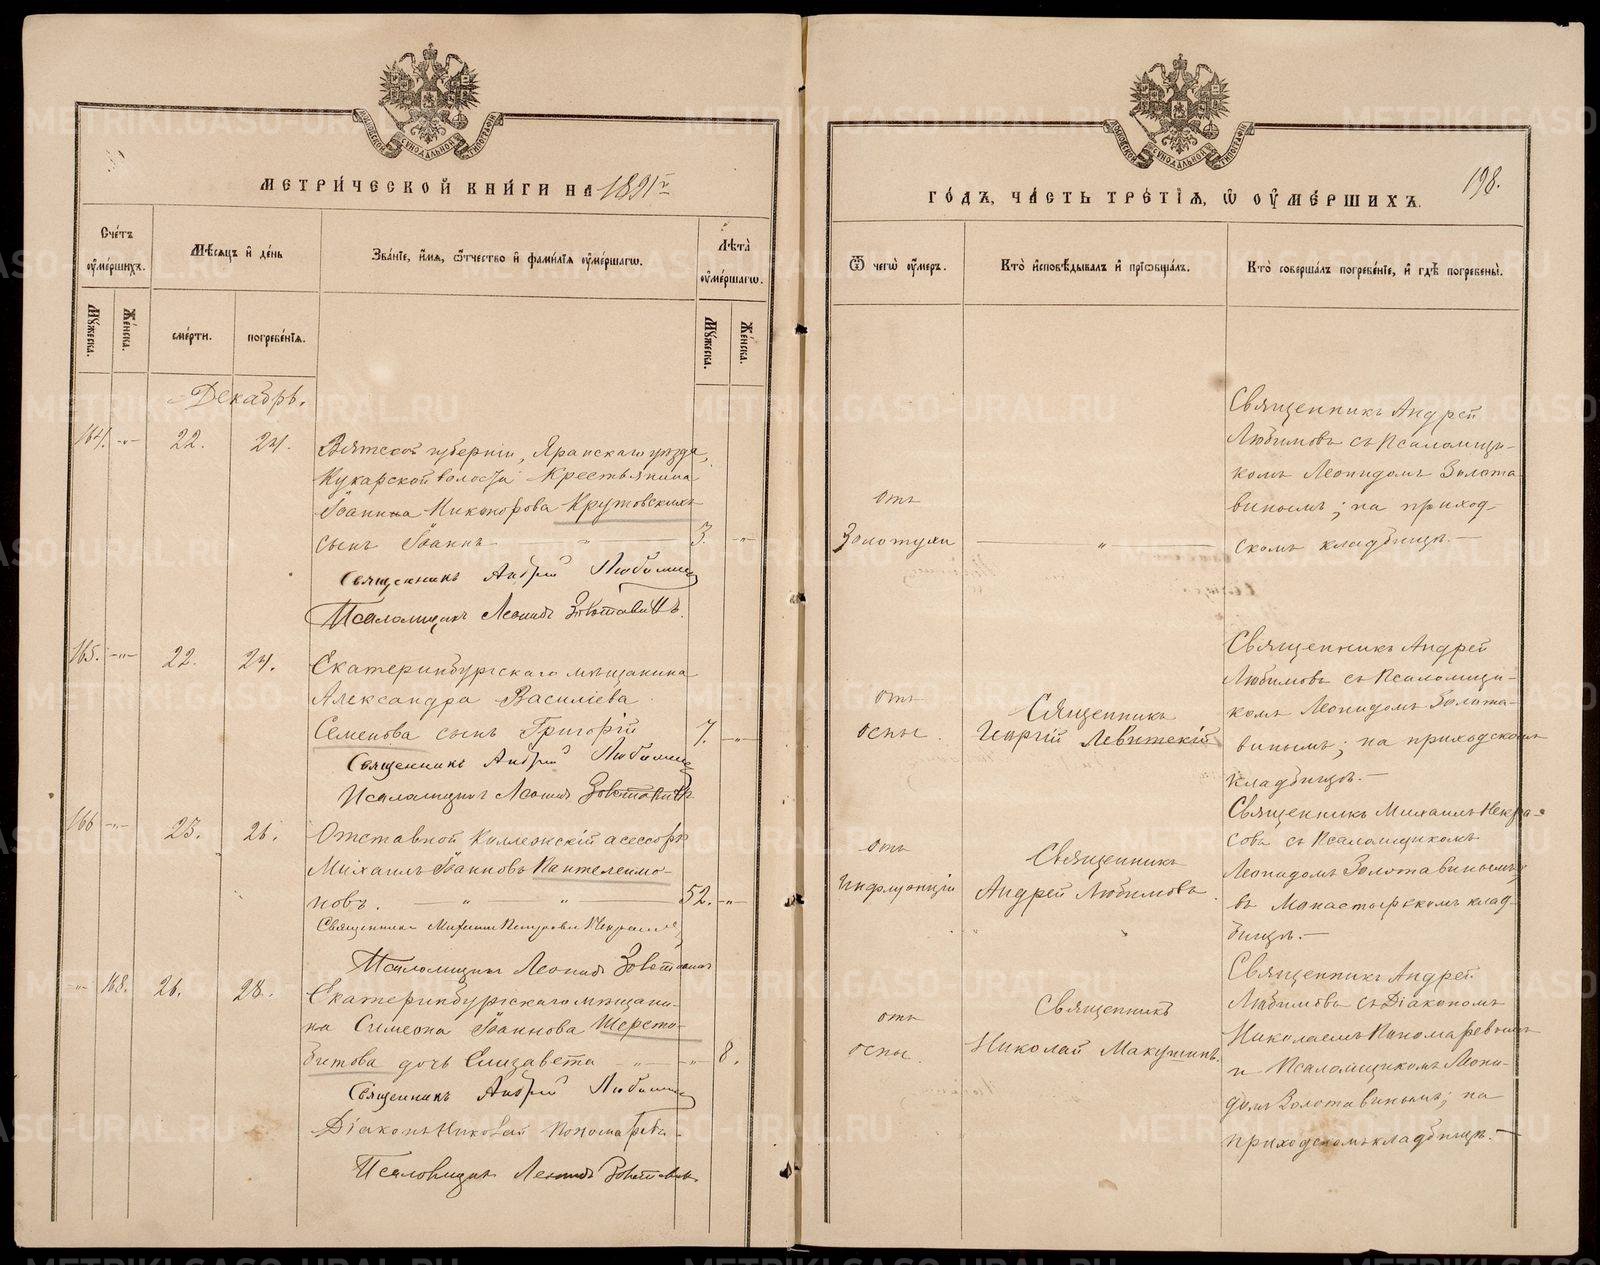 МЕТРИ́ЧЕСКОЙ КНИ́ГИ НА 1891 г.
Сче́тъ оу҆ме́ршихъ.
Мѣ́сяцъ и҆ де́нь
Зва́нїе, и҆́мя, ѻ҆́тчество и҆ фами́лїя оу҆ме́ршагѡ.
Лѣ́та оу҆ме́ршагѡ.
Мꙋ́жеска.
Же́нска.
сме́рти.
погребе́нїя.
Мꙋ́жеска.
Же́нска.
Декабрь.
164. -"- 22. 24. Вятской губерніи, Яранскаго уѣзда,
Кукарской волости крестьянина
Іоанна Никонорова Крутовскихъ
сынъ Іоаннъ " 3. -"-
Священникъ Андрей Любимовъ
Псаломщикъ Леонидъ Золотавинъ.
165. -"- 22. 24. Екатеринбургскаго мѣщанина
Александра Василіева
Семенова сынъ Григорій 7. -"-
Священникъ Андрей Любимовъ
Псаломщикъ Леонидъ Золотавинъ
166 -"- 23. 26. Отставной Коллежскій асессоръ
Михаилъ Іоанновъ Пантелеимо-
новъ. " " 52. -"-
Священникъ Михаилъ Некрасовъ
Псаломщикъ Леонидъ Золотавинъ
-"- 168. 26. 28. Екатеринбургскаго мѣщани-
на Симеона Іоаннова Шерсто-
битова дочь Елизавета " -"- 8.
Священникъ Андрей Любимовъ
Діаконъ Николай Пономаревъ
Псаломщикъ Леонидъ Золотавинъ
МОСКОВСКОЙ СѴНОДАЛЬНОЙ ТИПОГРАФІИ
198.
ГО́ДЪ, ЧА́СТЬ ТРЕ́ТЇЯ, Ѽ ОУ҆МЕ́РШИХЪ.
Ѿ чегѡ̀ оу҆́меръ.
Кто̀ и҆сповѣ́дывалъ и҆ прїѡбща́лъ.
Кто̀ соверша́лъ погребе́нїе, и҆ гдѣ̀ погребены̀.
отъ
Золотухи
"
Священникъ Андрей
Любимовъ съ Псаломщи-
комъ Леонидомъ Золота
винымъ; на приход-
скомъ кладбищѣ.—
отъ
оспы.
Священникъ
Георгій Левитскій
Священникъ Андрей
Любимовъ съ Псаломщи-
комъ Леонидомъ Золота-
винымъ; на приходскомъ
кладбищѣ.—
отъ
Инфлуэнціи
Священникъ
Андрей Любимовъ.
Священникъ Михаилъ Некра-
совъ съ Псаломщикомъ
Леонидомъ Золотавинымъ;
въ Монастырскомъ клад-
бищѣ.—
отъ
оспы.
Священникъ
Николай Макушинъ.
Священникъ Андрей
Любимовъ съ Діакономъ
Николаемъ Пономаревымъ
и Псаломщикомъ Леони-
домъ Золотавинымъ; на
приходскомъ кладбищѣ.—
МОСКОВСКОЙ СѴНОДАЛЬНОЙ ТИПОГРАФІИ
METRIKI.GASO-URAL.RU